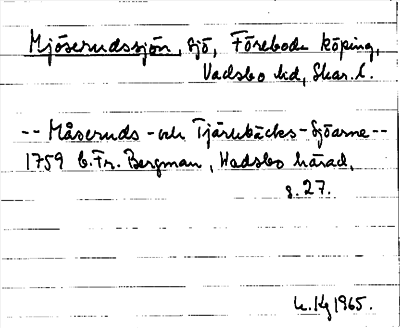 Mjöserudssjön, sjö, Töreboda köping,
Vadsbo hd, Skar. l.
-- Måseruds - och Tjärubäcks - Sjöarne --
1759 C. Fr. Bergman, Wadsbo härad,
s. 27.
1965.